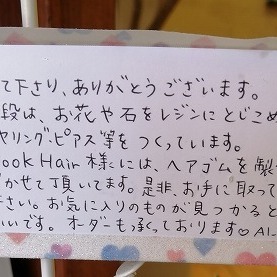 て下さり、ありがとうございます。
段は、お花や石をレジンにとじこめ
ヤリング・ピアス等をつくっています。
ook Hair 様には、ヘアゴムを製
かせて頂いてます。是非、お手に取って
さい。お気に入りのものが見つかると
いいです。オーダーも承くております♡ AI-